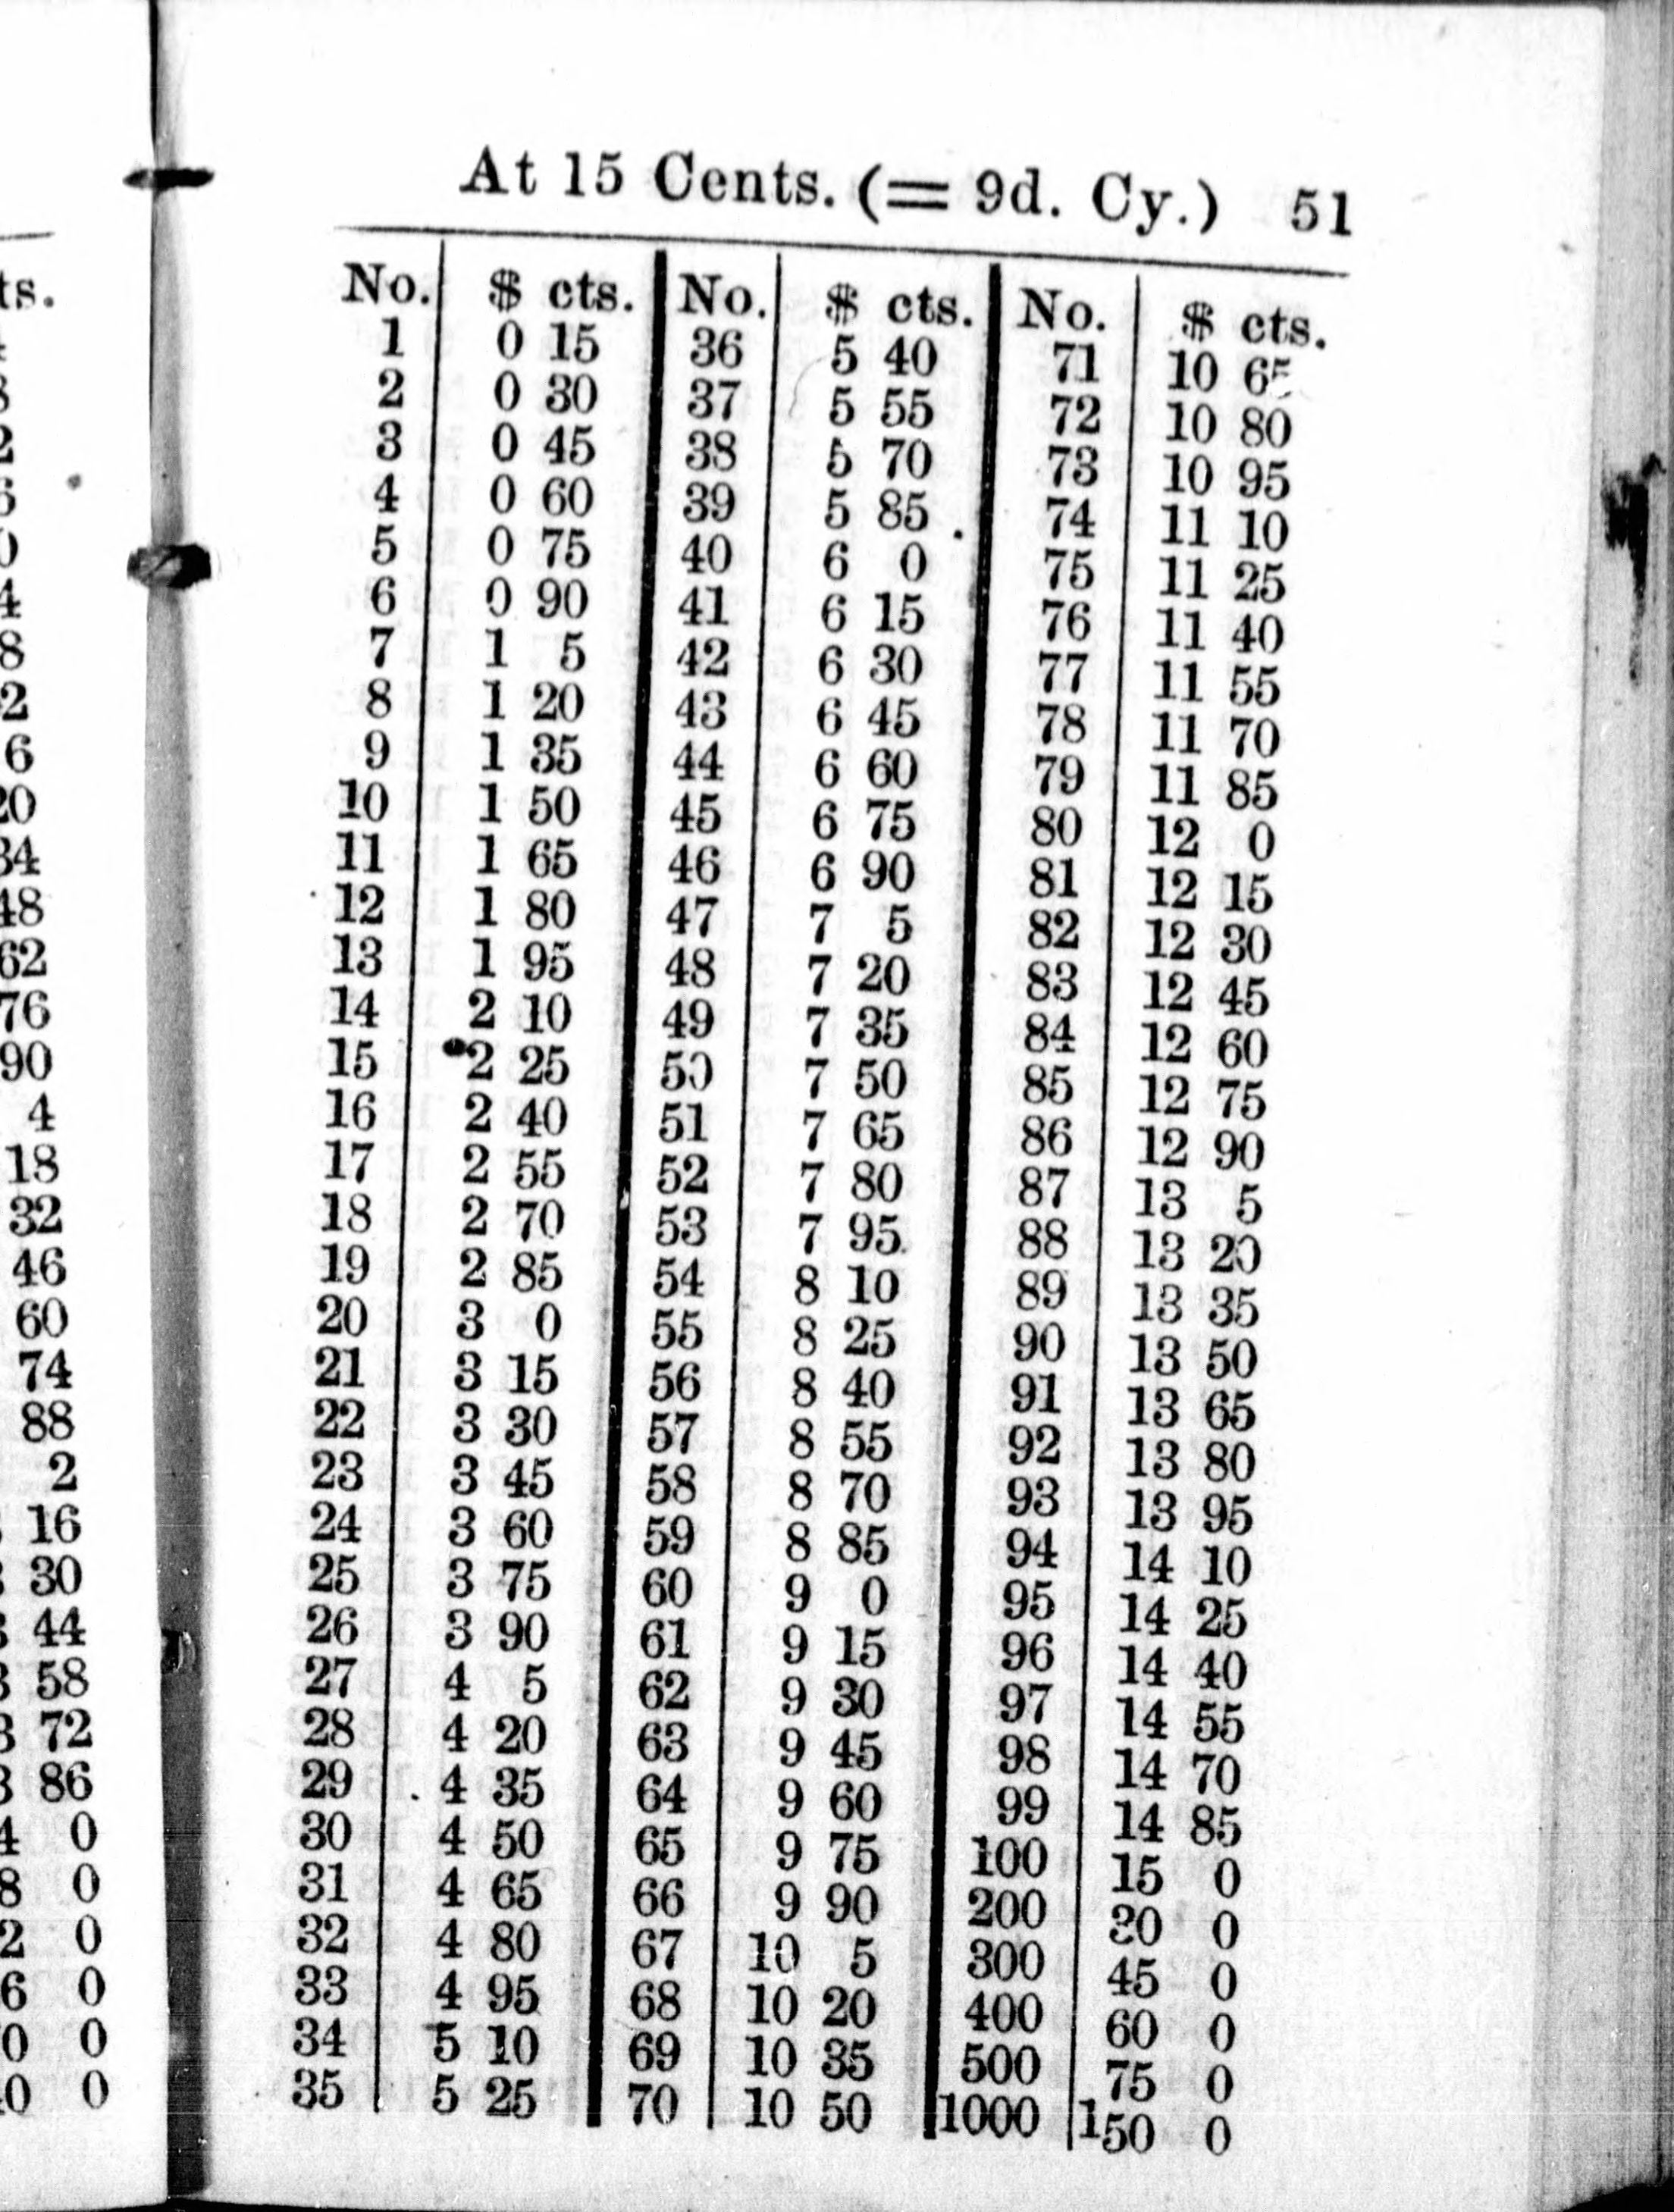 At 15 Cents. (= 9d. Cy.) 51
No. $ cts. No. $ cts. No. $ cts.
1 0 15 36 5 40 71 10 65
2 0 30 37 5 55 72 10 80
3 0 45 38 5 70 73 10 95
4 0 60 39 5 85 74 11 10
5 0 75 40 6 0 75 11 25
6 0 90 41 6 15 76 11 40
7 1 5 42 6 30 77 11 55
8 1 20 43 6 45 78 11 70
9 1 35 44 6 60 79 11 85
10 1 50 45 6 75 80 12 0
11 1 65 46 6 90 81 12 15
12 1 80 47 7 5 82 12 30
13 1 95 48 7 20 83 12 45
14 2 10 49 7 35 84 12 60
15 2 25 50 7 50 85 12 75
16 2 40 51 7 65 86 12 90
17 2 55 52 7 80 87 13 5
18 2 70 53 7 95 88 13 20
19 2 85 54 8 10 89 13 35
20 3 0 55 8 25 90 13 50
21 3 15 56 8 40 91 13 65
22 3 30 57 8 55 92 13 80
23 3 45 58 8 70 93 13 95
24 3 60 59 8 85 94 14 10
25 3 75 60 9 0 95 14 25
26 3 90 61 9 15 96 14 40
27 4 5 62 9 30 97 14 55
28 4 20 63 9 45 98 14 70
29 4 35 64 9 60 99 14 85
30 4 50 65 9 75 100 15 0
31 4 65 66 9 90 200 30 0
32 4 80 67 10 5 300 45 0
33 4 95 68 10 20 400 60 0
34 5 10 69 10 35 500 75 0
35 5 25 70 10 50 1000 150 0